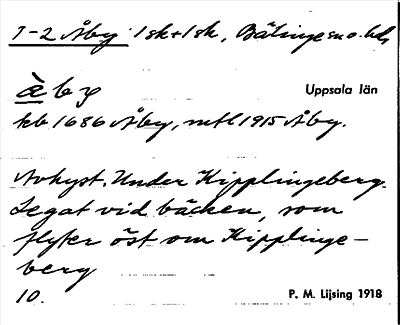 1-2 Åby 1 sk + 1 sk, Bälinge sn o. hd,
àby Uppsala län
kb 1686 Åby, mtl 1915 Åby.
Avhyst. Under Kipplingeberg.
Legat vid bäcken, som
flyter öst om Kipplinge-
berg
10. P. M. Lijsing 1918